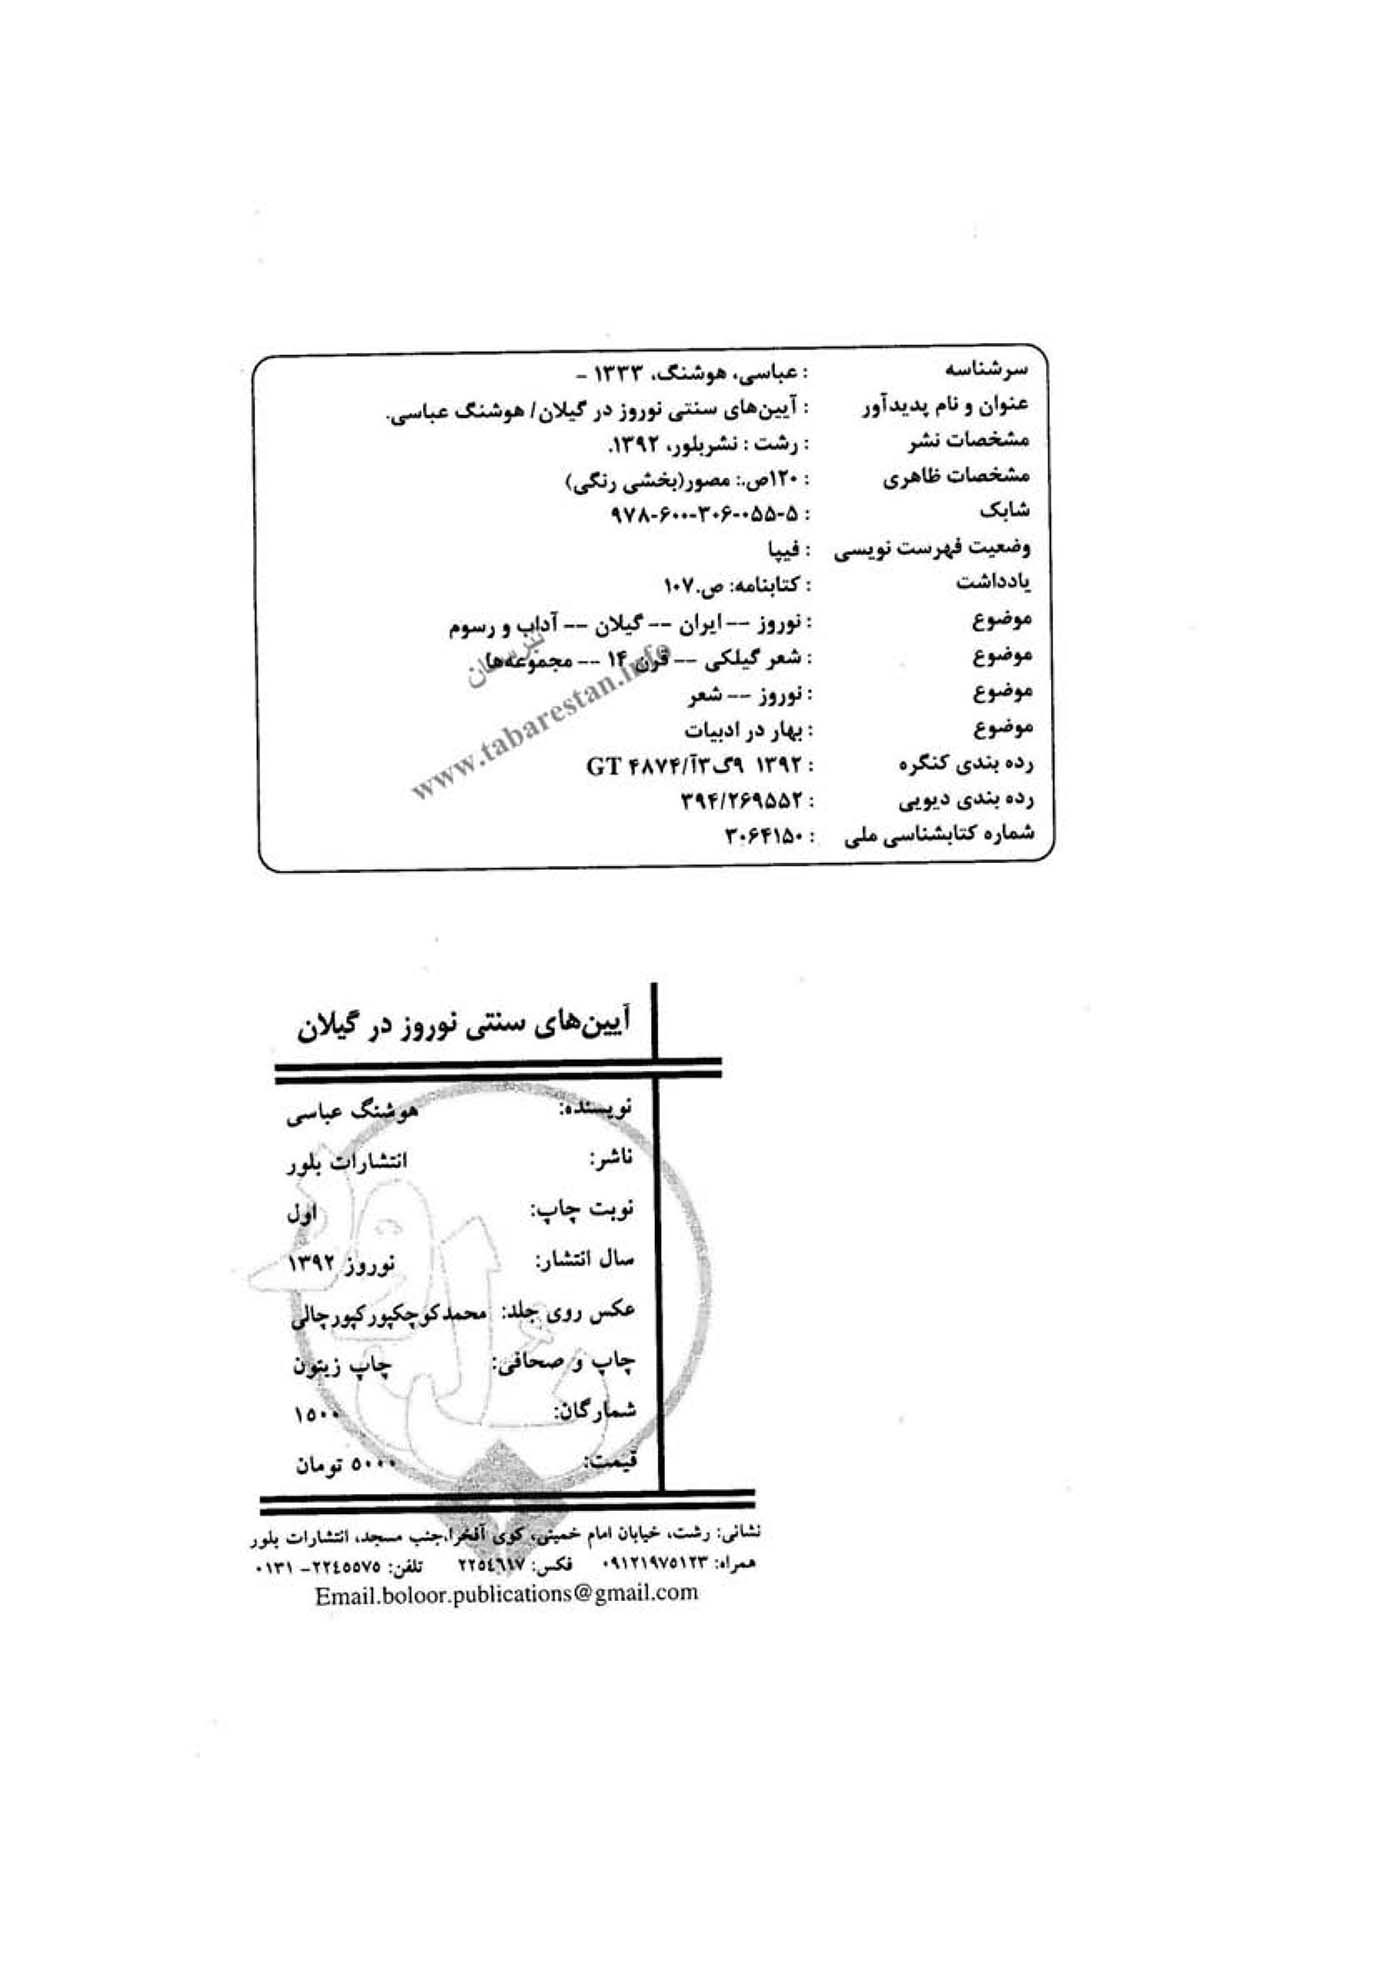 سرشناسه : عباسی، هوشنگ، ۱۳۳۳ -
عنوان و نام پدیدآور : آیین‌های سنتی نوروز در گیلان/ هوشنگ عباسی.
مشخصات نشر : رشت : نشربلور، ۱۳۹۲.
مشخصات ظاهری : ۱۲۰ص.: مصور(بخشی رنگی)
شابک : ۹۷۸-۶۰۰-۳۰۶-۰۵۵-۵
وضعیت فهرست نویسی : فیپا
یادداشت : کتابنامه: ص.۱۰۷
موضوع : نوروز -- ایران -- گیلان -- آداب و رسوم
موضوع : شعر گیلکی -- قرن ۱۴ -- مجموعه‌ها
موضوع : نوروز -- شعر
موضوع : بهار در ادبیات
رده بندی کنگره : ۱۳۹۲ ۹گ۳آ/GT ۴۸۷۴
رده بندی دیویی : ۳۹۴/۲۶۹۵۵۲
شماره کتابشناسی ملی : ۳۰۶۴۱۵۰
تبرستان
www.tabarestan.info
آیین‌های سنتی نوروز در گیلان
نویسنده: هوشنگ عباسی
ناشر: انتشارات بلور
نوبت چاپ: اول
سال انتشار: نوروز ۱۳۹۲
عکس روی جلد: محمدکوچکپورکپورچالی
چاپ و صحافی: چاپ زیتون
شمارگان: ۱۵۰۰
قیمت: ۵۰۰۰ تومان
نشانی: رشت، خیابان امام خمینی، کوی آفخرا،جنب مسجد، انتشارات بلور
همراه: ۰۹۱۲۱۹۷۵۱۲۳ فکس: ۲۲۵٤٦۱۷ تلفن: ۲۲٤۵۵۷۵- ۰۱۳۱
Email.boloor.publications@gmail.com